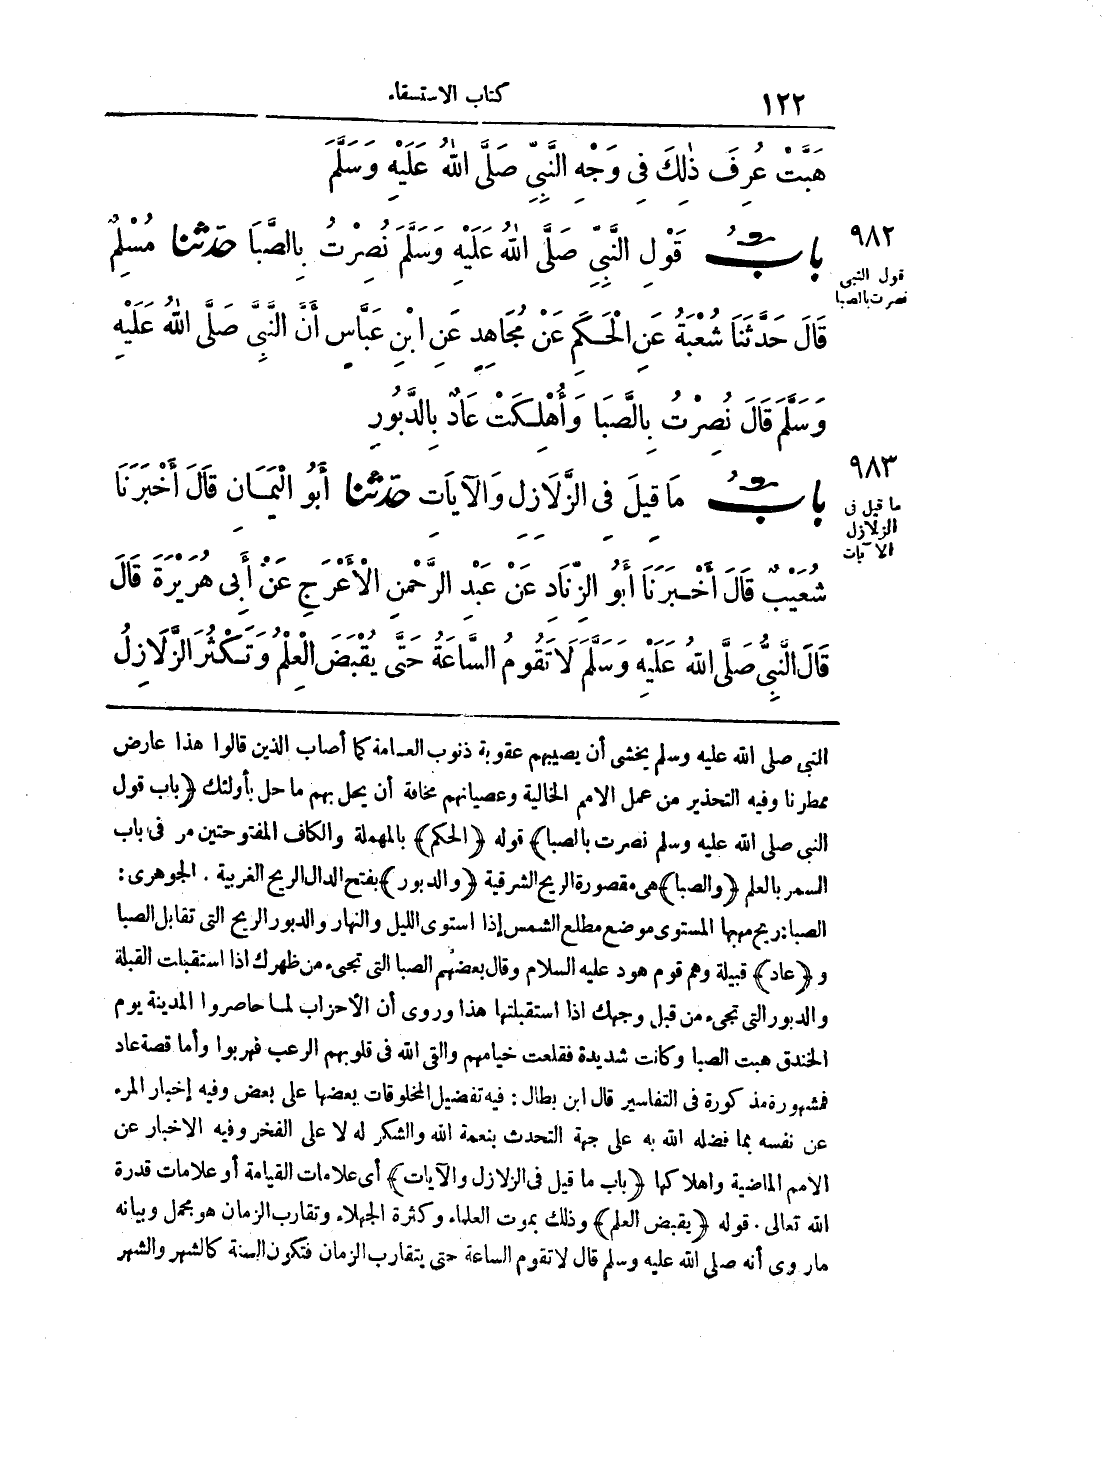 ١٢٢ كتاب الاستسقاء
هَبَّتْ عُرِفَ ذٰلِكَ فِى وَجْهِ النَّبِيِّ صَلَّى اللهُ عَلَيْهِ وَسَلَّمَ
٩٨٢
قول النبى
نصرت بالصبا
بابُ قَوْلِ النَّبِيِّ صَلَّى اللهُ عَلَيْهِ وَسَلَّمَ نُصِرْتُ بِالصَّبَا حَدَّثَنَا مُسْلِمٌ
قَالَ حَدَّثَنَا شُعْبَةُ عَنِ الْحَكَمِ عَنْ مُجَاهِدٍ عَنِ ابْنِ عَبَّاسٍ أَنَّ النَّبِيَّ صَلَّى اللهُ عَلَيْهِ
وَسَلَّمَ قَالَ نُصِرْتُ بِالصَّبَا وَأُهْلِكَتْ عَادٌ بِالدَّبُورِ
٩٨٣
ما قيل فى
الزلازل
الآيات
بابُ مَا قِيلَ فِى الزَّلَازِلِ وَالْآيَاتِ حَدَّثَنَا أَبُو الْيَمَانِ قَالَ أَخْبَرَنَا
شُعَيْبٌ قَالَ أَخْبَرَنَا أَبُو الزِّنَادِ عَنْ عَبْدِ الرَّحْمٰنِ الْأَعْرَجِ عَنْ أَبِى هُرَيْرَةَ قَالَ
قَالَ النَّبِيُّ صَلَّى اللهُ عَلَيْهِ وَسَلَّمَ لَا تَقُومُ السَّاعَةُ حَتَّى يُقْبَضَ الْعِلْمُ وَتَكْثُرَ الزَّلَازِلُ
النبى صلى الله عليه وسلم يخشى أن يصيبهم عقوبة ذنوب العامة كما أصاب الذين قالوا هذا عارض
ممطرنا وفيه التحذير من عمل الامم الخالية وعصيانهم مخافة أن يحل بهم ما حل بأولئك ﴿باب قول
النبى صلى الله عليه وسلم نصرت بالصبا﴾ قوله ﴿الحكم﴾ بالمهملة والكاف المفتوحتين مر فى باب
السمر بالعلم ﴿والصبا﴾ هى مقصورة الريح الشرقية ﴿والدبور﴾ بفتح الدال الريح الغربية . الجوهرى :
الصبا: ريح مهبها المستوى موضع مطلع الشمس إذا استوى الليل والنهار والدبور الريح التى تقابل الصبا
و﴿عاد﴾ قبيلة وهم قوم هود عليه السلام وقال بعضهم الصبا التى تجىء من ظهرك اذا استقبلت القبلة
والدبور التى تجىء من قبل وجهك اذا استقبلتها هذا وروى أن الأحزاب لما حاصروا المدينة يوم
الخندق هبت الصبا وكانت شديدة فقلعت خيامهم والقى الله فى قلوبهم الرعب فهربوا وأما قصة عاد
فمشهورة مذكورة فى التفاسير قال ابن بطال : فيه تفضيل المخلوقات بعضها على بعض وفيه إخبار المرء
عن نفسه بما فضله الله به على جهة التحدث بنعمة الله والشكر له لا على الفخر وفيه الاخبار عن
الامم الماضية واهلاكها ﴿باب ما قيل فى الزلازل والآيات﴾ أى علامات القيامة أو علامات قدرة
الله تعالى . قوله ﴿يقبض العلم﴾ وذلك بموت العلماء وكثرة الجهلاء وتقارب الزمان هو مجمل وبيانه
ما روى أنه صلى الله عليه وسلم قال لا تقوم الساعة حتى يتقارب الزمان فتكون السنة كالشهر والشهر